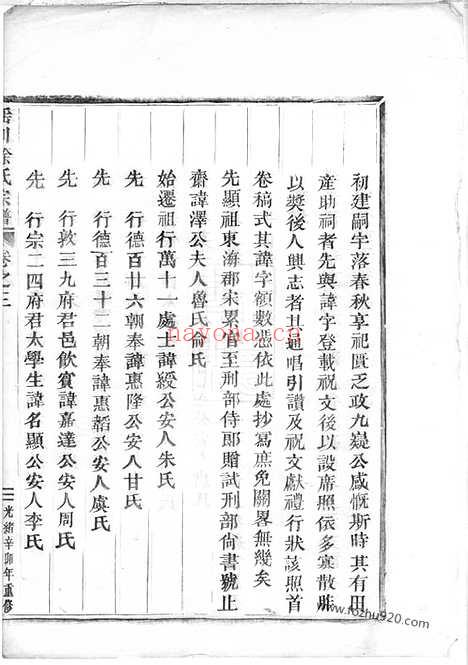 初建嗣宇落春秋享祀匱乏政九嶷公感慨斯時其有田
產助祠者先與諱字登載祝文後以設席照依多寡散胙
以獎後人興志者其通唱引讚及祝文獻禮行狀該照首
卷稿式其諱字額數憑依此處抄寫庶免關畧無幾矣
先顯祖東海郡宋累官至刑部侍郎贈試刑部尙書號止
齋諱澤公夫人魯氏俞氏
始遷祖行萬十一處士諱綬公安人朱氏
先　行德百廿六朝奉諱惠隆公安人甘氏
先　行德百三十二朝奉諱惠韜公安人虞氏
先　行敦三九府君邑飲賓諱嘉達公安人周氏
先　行宗二四府君太學生諱名顯公安人李氏
川徐氏宗譜
卷之三
光緒辛卯年重修
nayona.cn
www.fozhu920.com